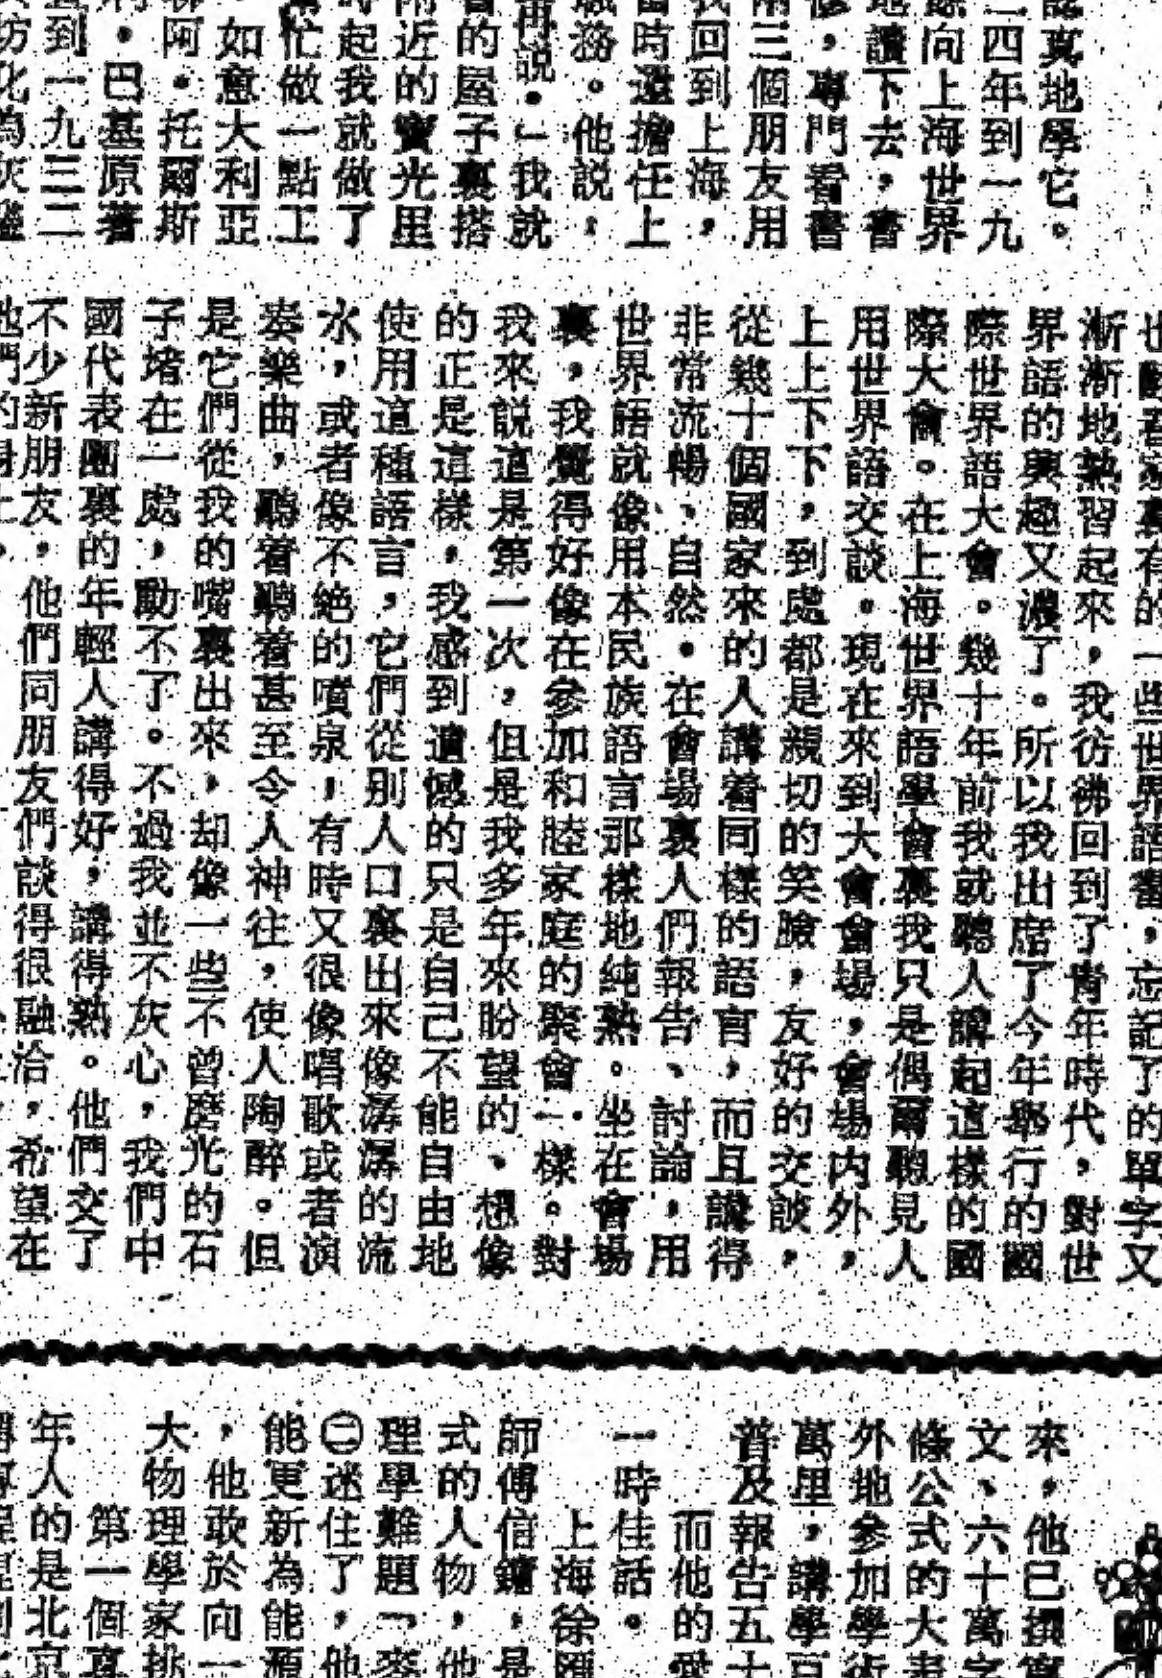 認真地學它。
二四年到一九
餘向上海世界
地讀下去，書
修，專門看書
兩三個朋友用
我回到上海，
當時還擔任上
職務。他説，
再説。」我就
的屋子裏搭
附近的寶光里
時起我就做了
忙做一點工
如意大利亞
阿·托爾斯
·巴基原著
到一九三二
坊化為灰燼
一些世界語書，忘記了的單字又
漸漸地熟習起來，我彷彿回到了青年時代，對世
界語的興趣又濃了。所以我出席了今年舉行的國
際世界語大會。幾十年前我就聽人講起這樣的國
際大會。在上海世界語學會裏我只是偶爾聽見人
用世界語交談。現在來到大會會場，會場内外，
上上下下，到處都是親切的笑臉，友好的交談，
從幾十個國家來的人講着同樣的語言，而且講得
非常流暢、自然。在會場裏人們報告、討論，用
世界語就像用本民族語言那樣地純熟。坐在會場
裏，我覺得好像在參加和睦家庭的聚會一樣。對
我來説這是第一次，但是我多年來盼望的、想像
的正是這樣，我感到遺憾的只是自己不能自由地
使用這種語言，它們從別人口裏出來像潺潺的流
水，或者像不絶的噴泉，有時又很像唱歌或者演
奏樂曲，聽着聽着甚至令人神往，使人陶醉。但
是它們從我的嘴裏出來，却像一些不曾磨光的石
子堵在一處，動不了。不過我並不灰心，我們中
國代表團裏的年輕人講得好，講得熟。他們交了
不少新朋友，他們同朋友們談得很融洽，希望在
他們的身上，
來，他已撰寫
文、六十萬字
條公式的大書
外地參加學術
萬里，講學
普及報告五十
而他的愛
一時佳話。
上海徐匯
師傅信鏞，是
式的人物，他
理學難題「麥
㊁迷住了，他
能更新為能源
，他敢於向一
大物理學家挑
第一個真
年人的是北京